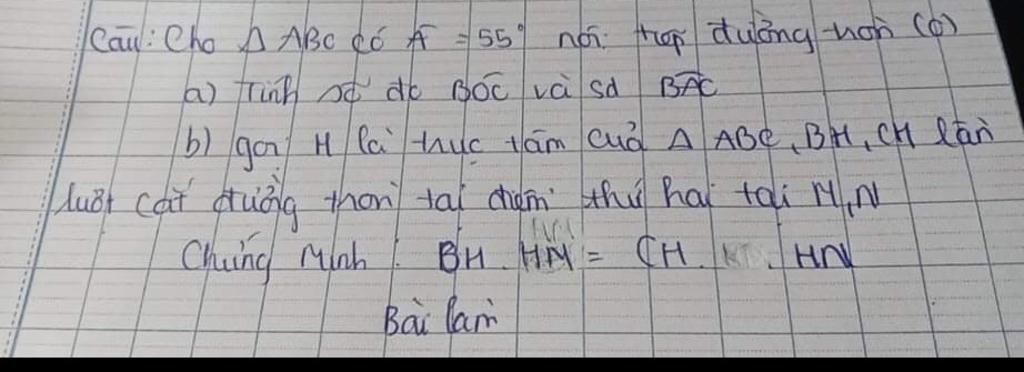 Câu: Cho Δ ABC có Â = 55° nội tiếp đường tròn (O)
a) Tính số đo BOC và sđ BAC
b) gọi H là trực tâm của Δ ABC, BH, CH lần
lượt cắt đường tròn tại điểm thứ hai tại M, N
Chứng Minh: BH. HM = CH. HN
Bài làm